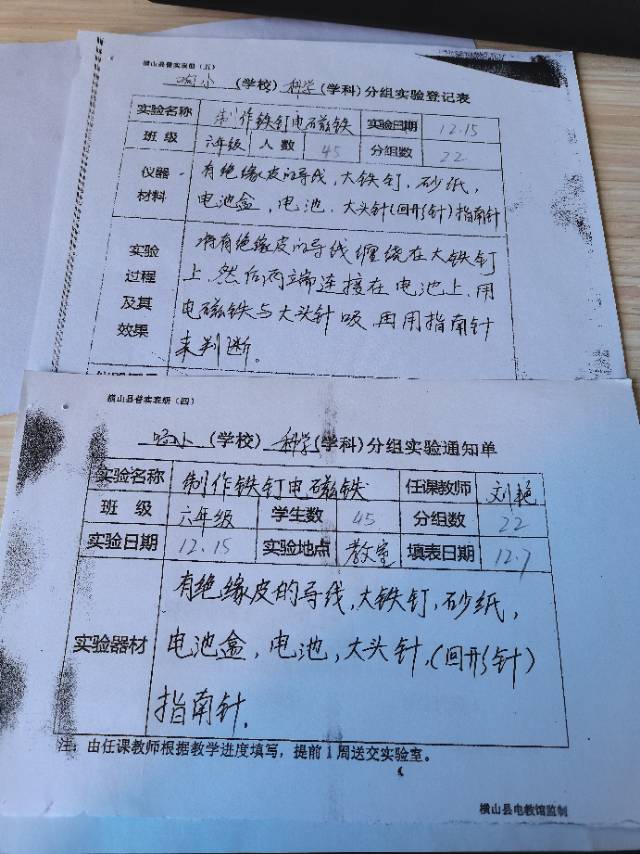 横山县普实表册（五）
响小（学校）科学（学科）分组实验登记表
实验名称 制作铁钉电磁铁 实验日期 12.15
班 级 六年级 人 数 45 分组数 22
仪器 有绝缘皮的导线，大铁钉，砂纸，
材料 电池盒，电池．大头针（回形针）指南针
实验 将有绝缘皮的导线缠绕在大铁钉
过程 上．然后两端连接在电池上．用
及其 电磁铁与大头针吸．再用指南针
效果 来判断。
横山县普实表册（四）
响小（学校）科学（学科）分组实验通知单
实验名称 制作铁钉电磁铁 任课教师 刘艳
班 级 六年级 学生数 45 分组数 22
实验日期 12.15 实验地点 教室 填表日期 12.7
有绝缘皮的导线，大铁钉，砂纸，
实验器材 电池盒，电池，大头针，（回形针）
指南针．
注：由任课教师根据教学进度填写，提前1周送交实验室。
横山县电教馆监制